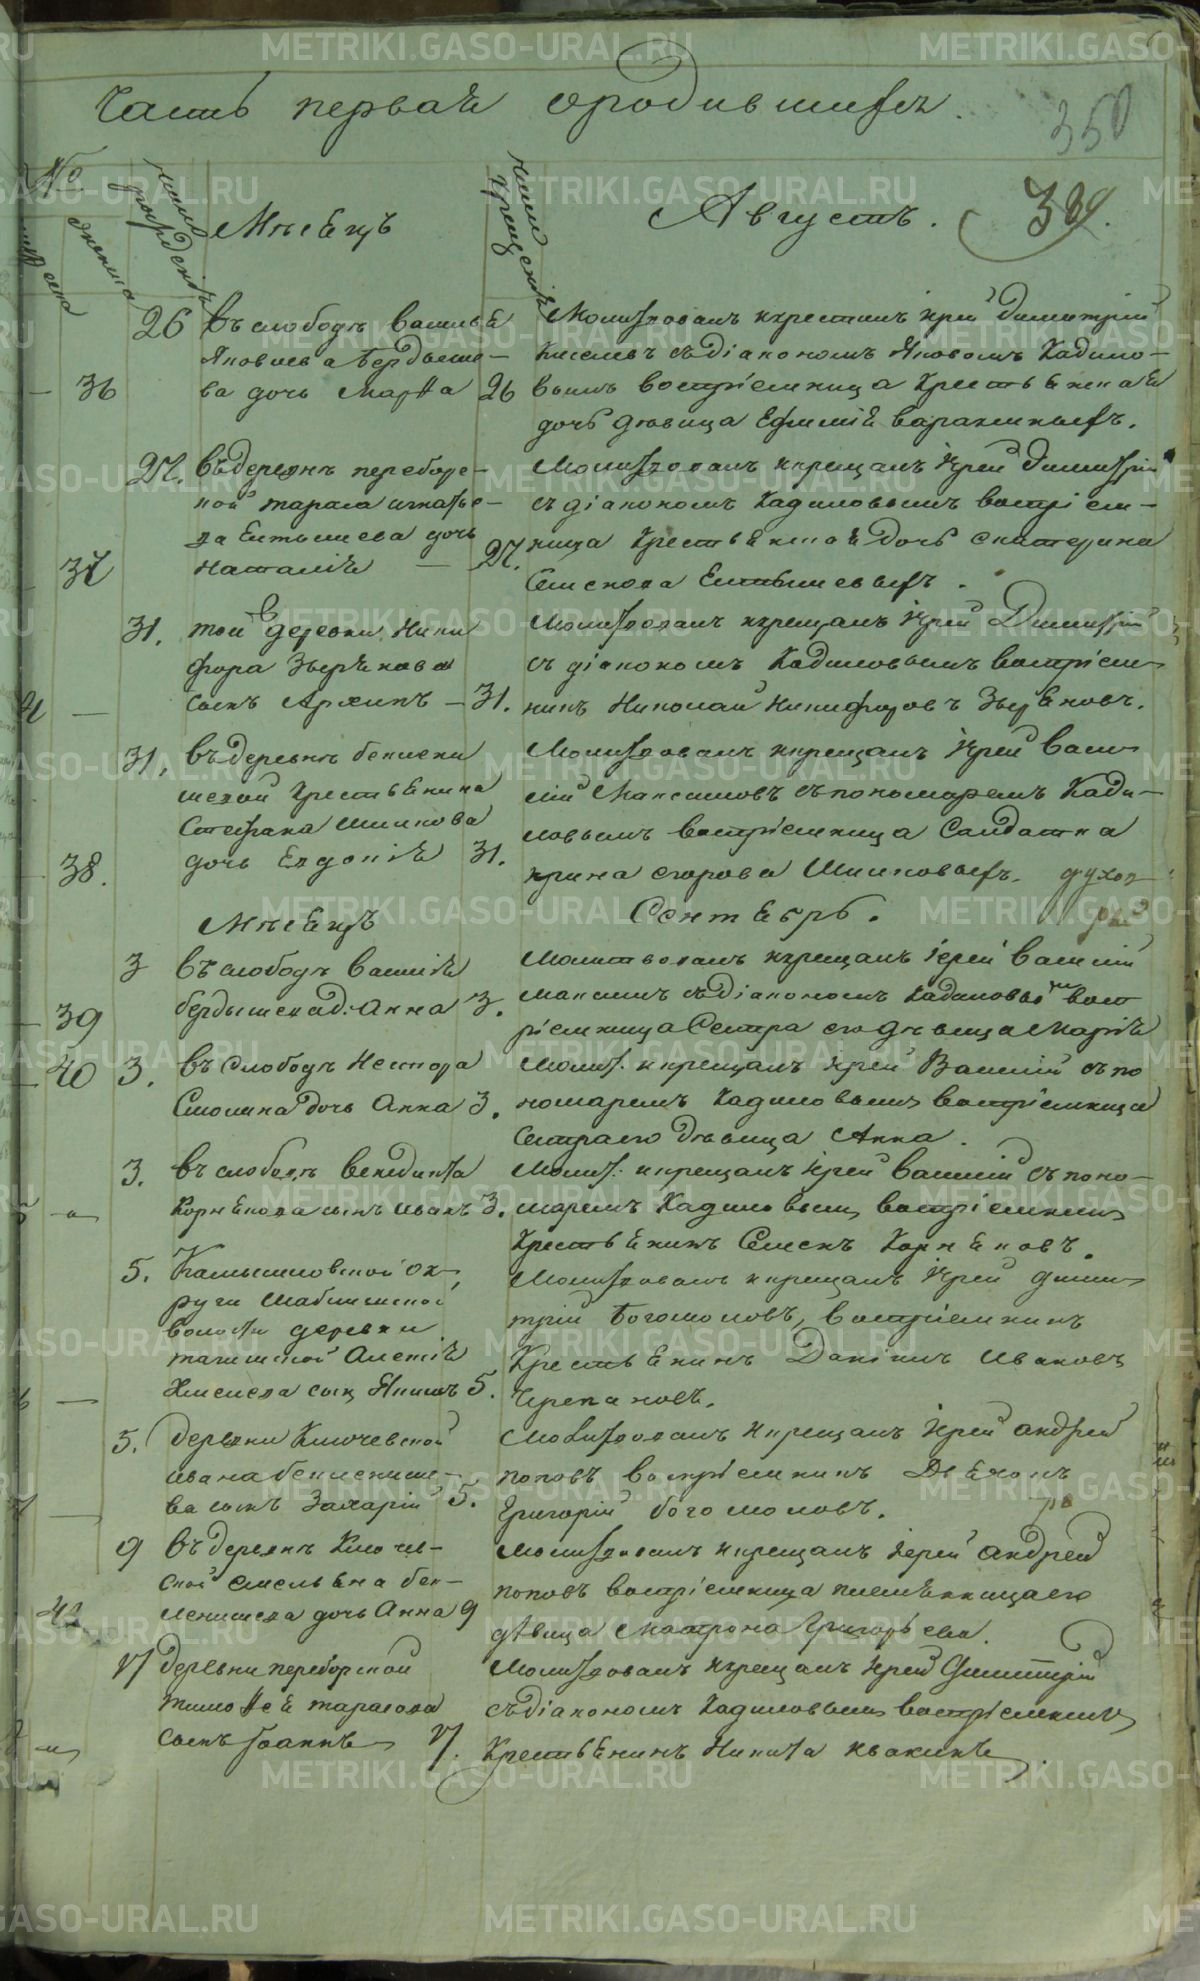 Часть первая ородившихся.
350
№
мужеска
женска
число рождения
Мѣсяцъ
число крещения
Августъ.
329.
26 Въ слободѣ Василья
Яковлева Бердыше-
36 ва дочь Марѳа 26
Молитвовалъ икрестилъ іерей Димитрій
Киселевъ съдіакономъ Яковомъ Кадило-
вымъ воспріемница Крестьянская
дочь дѣвица Ефимія Варакиныхъ.
27. Въдеревнѣ переборс-
ной тараса игнатье-
ва Елтышева дочь
37 Наталія — 27.
Молитвовалъ икрещалъ іерей Димитрій
съ діакономъ Кадиловымъ воспріем-
ница Крестьянская дочь екатерина
Семенова Елтышевыхъ.
31. той деревни Ники
фора Зверѣнова
сынъ Архипъ — 31.
Молитвовалъ икрещалъ іерей Димитрій
съ діакономъ Кадиловымъ воспріем
никъ Николай Никифоровъ Звѣревъ.
31. въдеревнѣ беклени
шевой крестьянина
Стефана Шишкова
38. дочь Евдокія 31.
Молитвовалъ икрещалъ іерей Васи
лій Максимовъ съпономаремъ Кади-
ловымъ воспріемница Салдатка
ирина егорова Шишковыхъ.
Мѣсяцъ
Сентябрь.
3 въ слободѣ Василія
39 бердышева д: Анна 3.
Молитвовалъ икрещалъ іерей Василій
Максим съдіакономъ Кадиловымъ вост
ріемница Сестра его дѣвица Марія
40 3. въ Слободѣ Нестора
Смолина дочь Анна 3.
Молит: икрещалъ іерей Василій съ по
номаремъ Кадиловымъ воспріемница
Сестра его дѣвица Анна.
3. въ слободѣ Венедикта
Корнякова сынъ иванъ 3.
Молит: икрещалъ іерей Василій съ поно-
маремъ Кадиловым воспріемникъ
Крестьянинъ Семенъ Корняковъ.
5. Камышловской ок-
руги
волости деревни
Алексѣя
сынъ Якимъ 5.
Молитвовалъ икрещалъ іерей дими
трій Богомоловъ, воспріемникъ
Крестьянинъ Даніилъ Ивановъ
Черепановъ.
5. деревни Ключевской
ивана бекленище-
ва сынъ Захарій 5.
Молитвовалъ икрещалъ іерей андрей
поповъ воспріемникъ Дьяконъ
Григорій богомоловъ.
9 въ деревнѣ Ключев-
ской емельяна бек-
42 ленищева дочь Анна 9
Молитвовалъ икрещалъ іерей андрей
поповъ воспріемница племянница его
дѣвица Матрона Григорьева.
17 деревни переборской
тимоѳея тарасова
сынъ Іоаннъ 17.
Молитвовалъ икрещалъ іерей Димитрій
съдіакономъ Кадиловымъ воспріемникъ
Крестьянинъ Никита ивакинъ.
METRIKI.GASO-URAL.RU